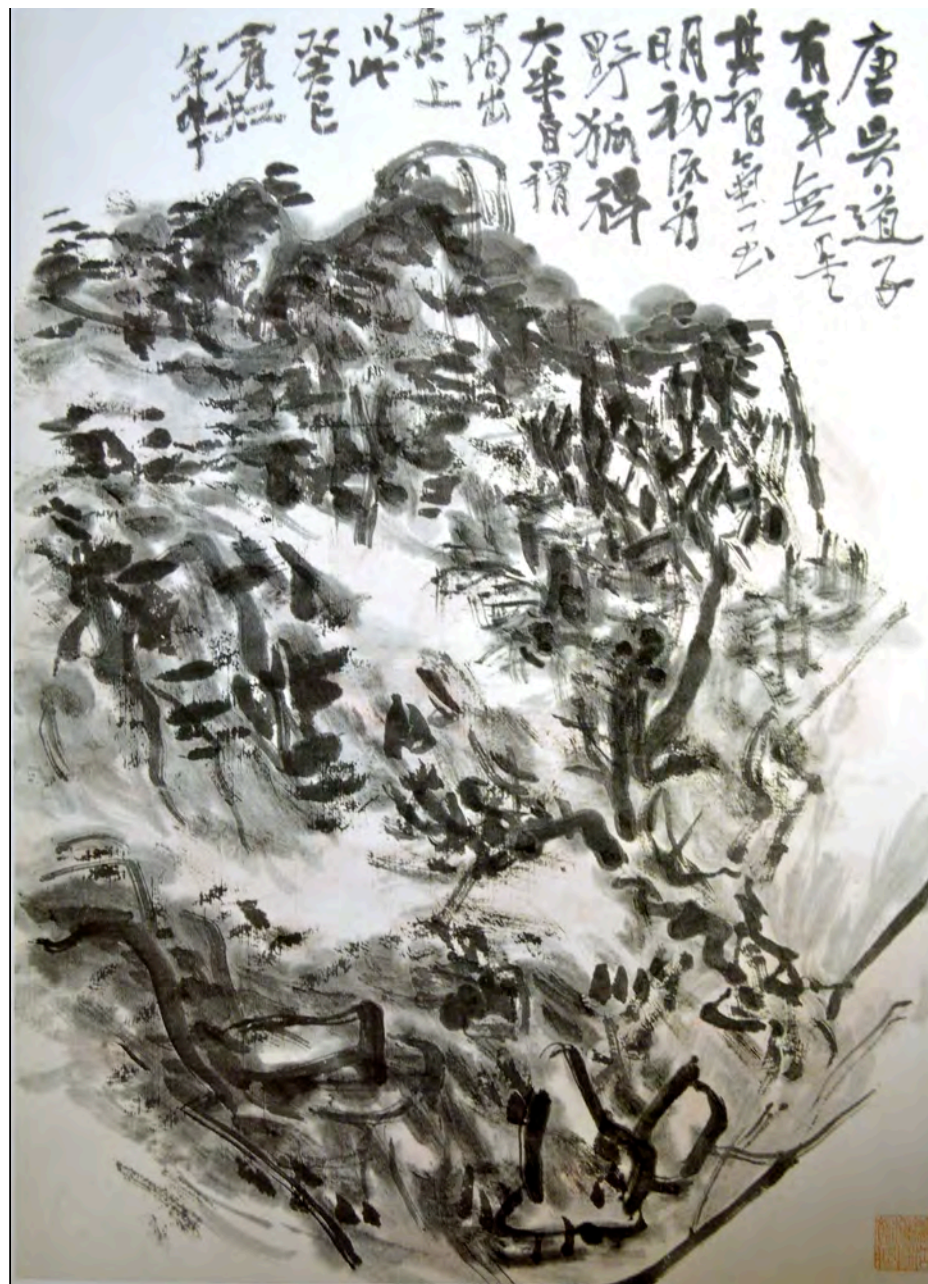 唐吳道子
有筆無墨
其習氣一
明初流為
野狐禪
大自謂
高出
其上
以此
癸巳
賓虹
年